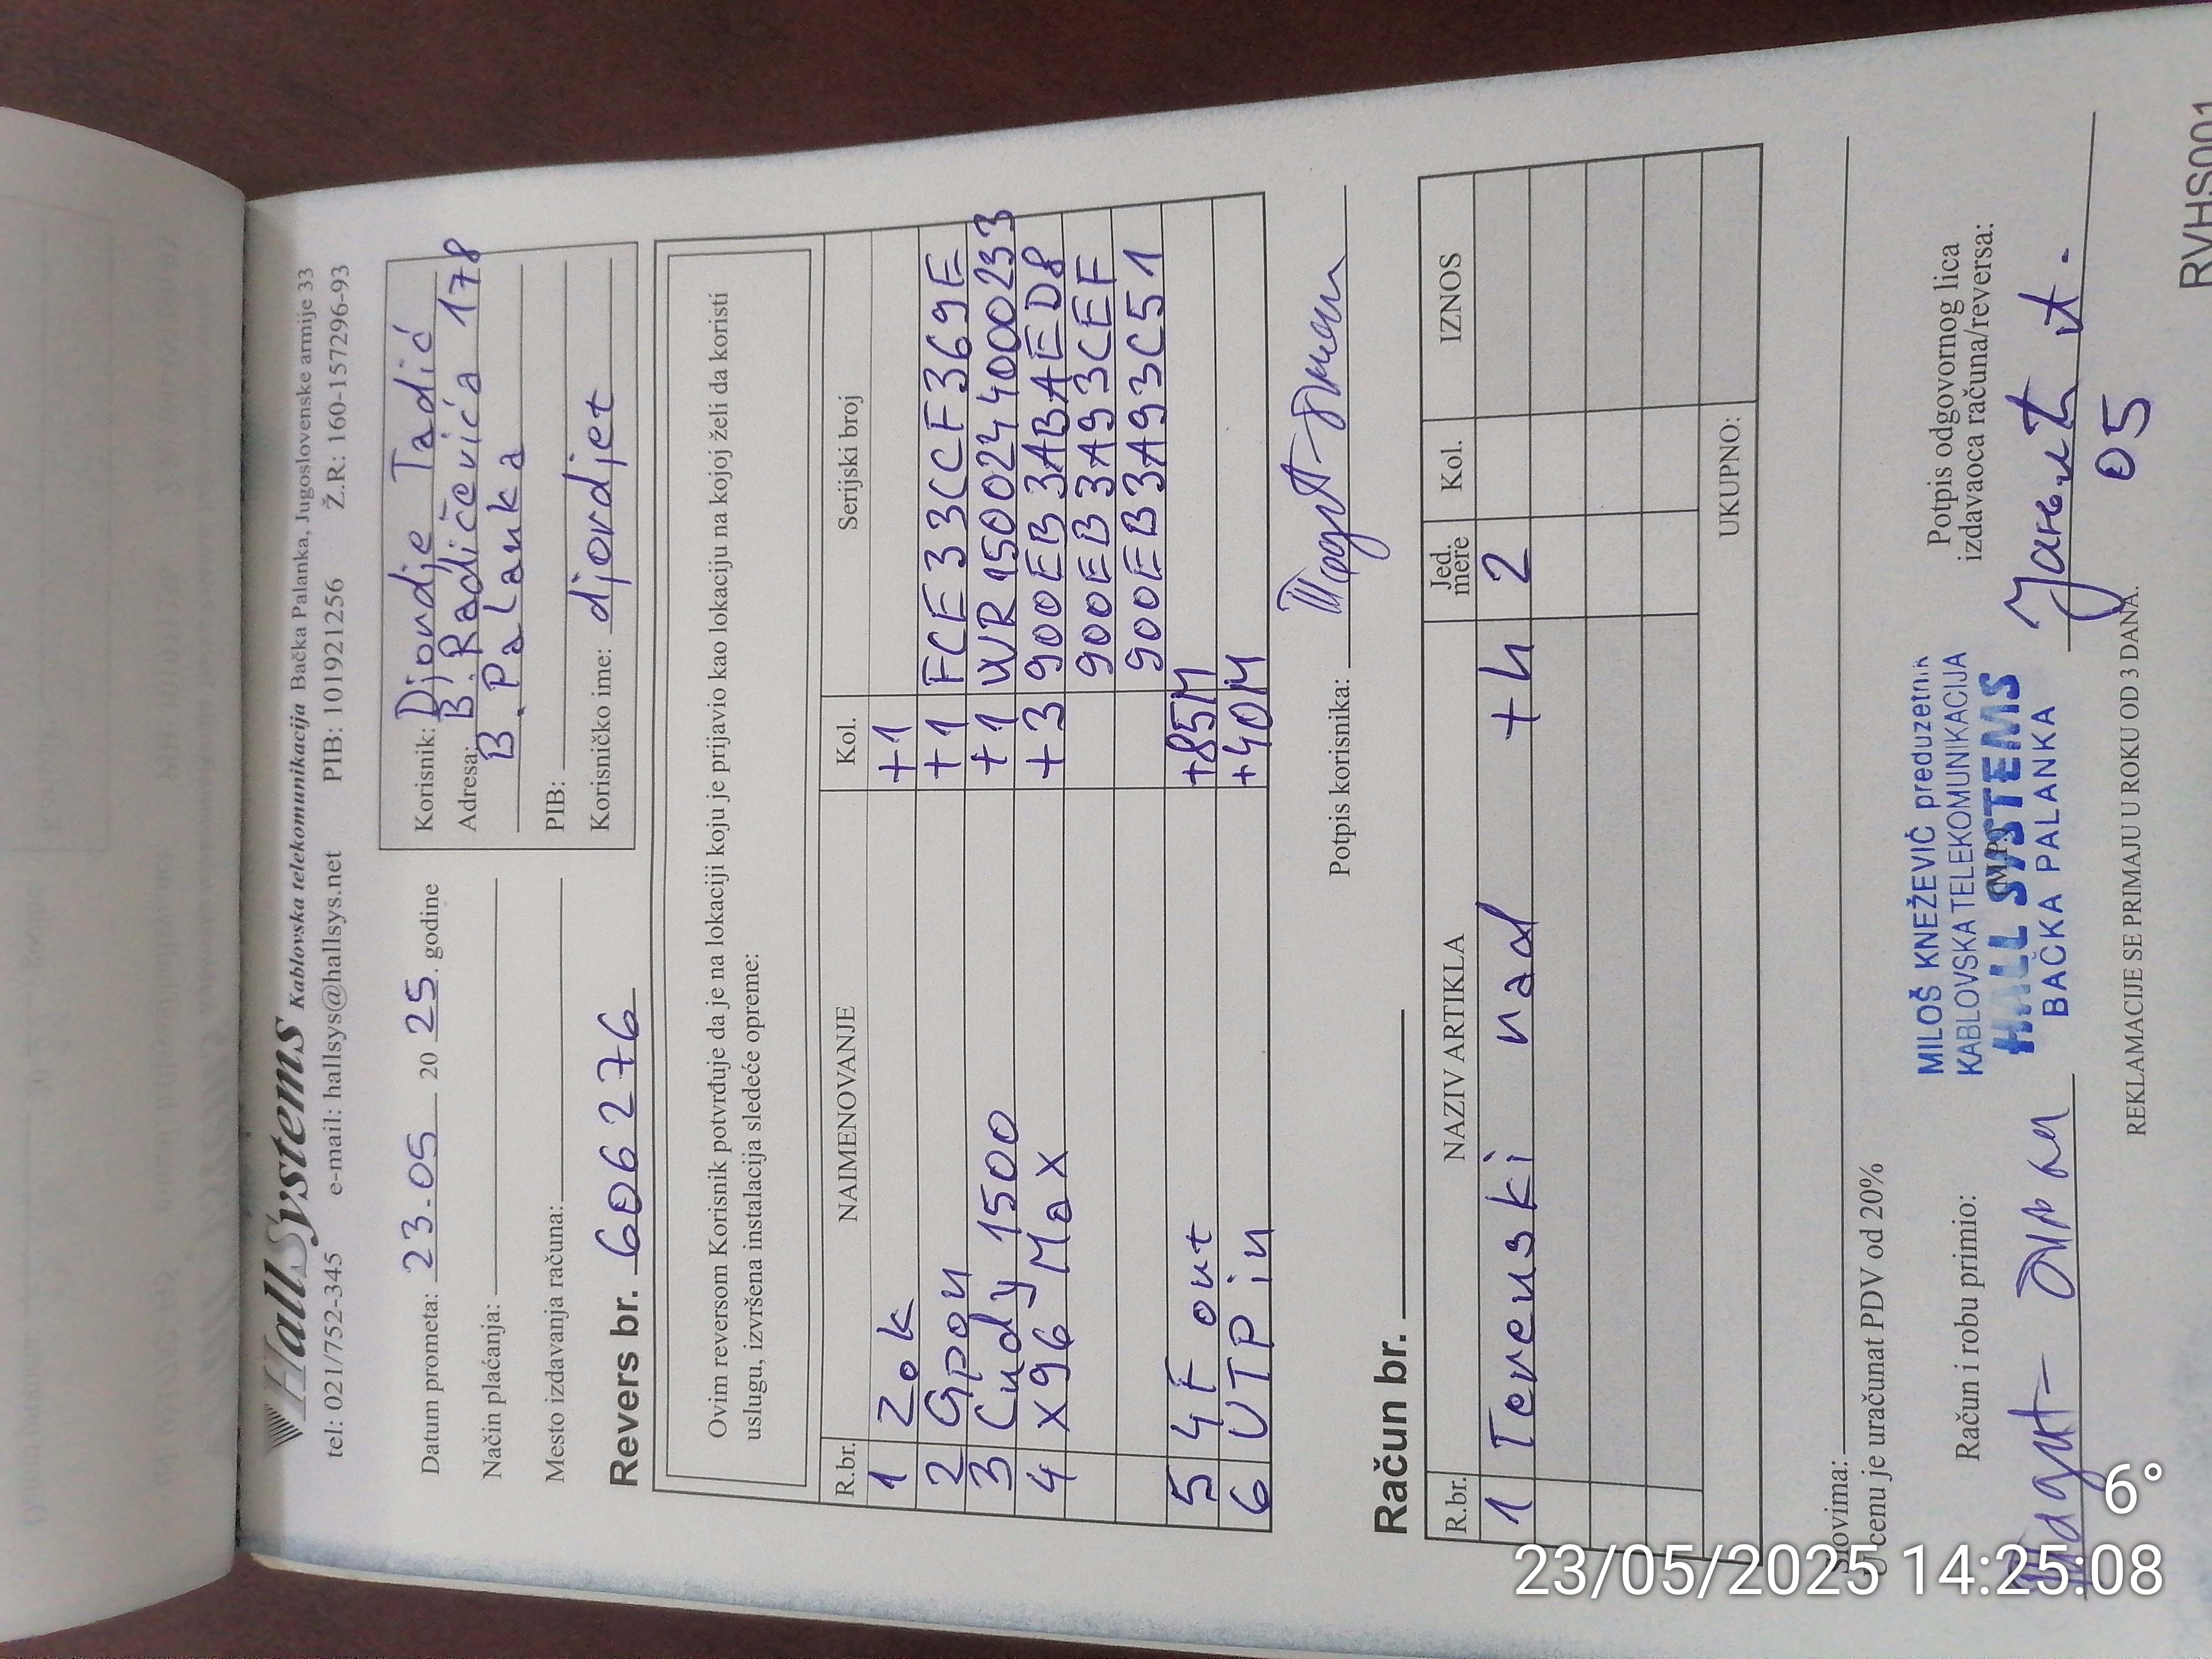 HallSystems Kablovska telekomunikacija Bačka Palanka, Jugoslovenske armije 33
tel: 021/752-345 e-mail: hallsys@hallsys.net PIB: 101921256 Ž.R: 160-157296-93
Datum prometa: 23.05 20 25. godine
Način plaćanja:
Mesto izdavanja računa:
Revers br. 606276
Korisnik: Djordje Tadić
Adresa: B. Radičevića 178
B. Palanka
PIB:
Korisničko ime: djordjet
Ovim reversom Korisnik potvrđuje da je na lokaciji koju je prijavio kao lokaciju na kojoj želi da koristi
uslugu, izvršena instalacija sledeće opreme:
R.br. NAIMENOVANJE Kol. Serijski broj
1 Zok +1
2 Gpon +1 FCE33CCF369E
3 Cudy 1500 +1 WR1500244000233
4 X96 Max +3 900EB3ABAED8
900EB3A93CEF
900EB3A93C51
5 4F out +85M
6 UTP in +40M
Potpis korisnika:
Račun br.
R.br. NAZIV ARTIKLA Jed. mere Kol. IZNOS
1 Terenski rad +h 2
UKUPNO:
Slovima:
U cenu je uračunat PDV od 20%
Račun i robu primio:
MILOŠ KNEŽEVIĆ preduzetnik
KABLOVSKA TELEKOMUNIKACIJA
HALL SYSTEMS
BAČKA PALANKA
(M.P.)
Potpis odgovornog lica
izdavaoca računa/reversa:
05
REKLAMACIJE SE PRIMAJU U ROKU OD 3 DANA.
RVHS001
6°
23/05/2025 14:25:08